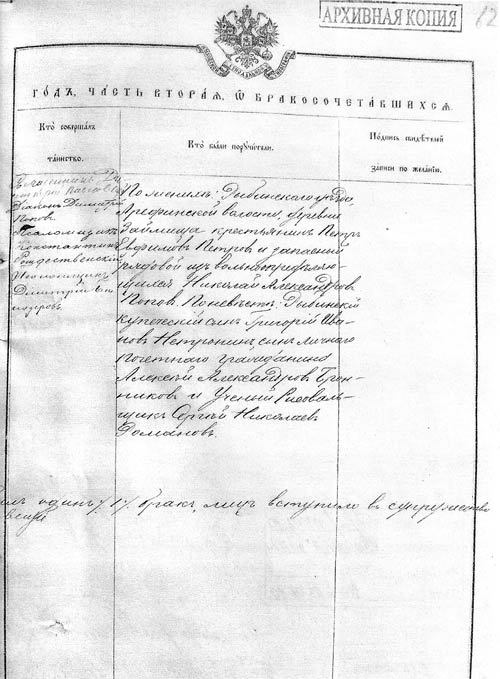 АРХИВНАЯ КОПИЯ
12
ГОДЪ, ЧАСТЬ ВТОРАЯ, Ѿ БРАКОСОЧЕТАВШИХСЯ
Кто совершалъ таинство.
Кто были поручители.
Подпись свидѣтелей записи по желанію.
Дьяконъ Димитрій
Поповъ
Псаломщикъ
Константинъ
Рождественскій
Димитрій
По женихѣ: Рыбинскаго уѣзда
Арефинской волости, деревни
Займища крестьянинъ Петръ
Евфимовъ Петровъ и запасной
рядовой изъ вольноопредѣляю-
щихся Николай Александровъ
Поповъ. По невѣстѣ: Рыбинскій
купеческій сынъ Григорій Ива-
новъ сынъ личнаго
почетнаго гражданина
Алексѣй Александровъ Брон-
никовъ и Ученый Рисоваль-
щикъ Сергѣй Николаевъ
Романовъ.
одинъ бракъ лицъ вступило въ супружество